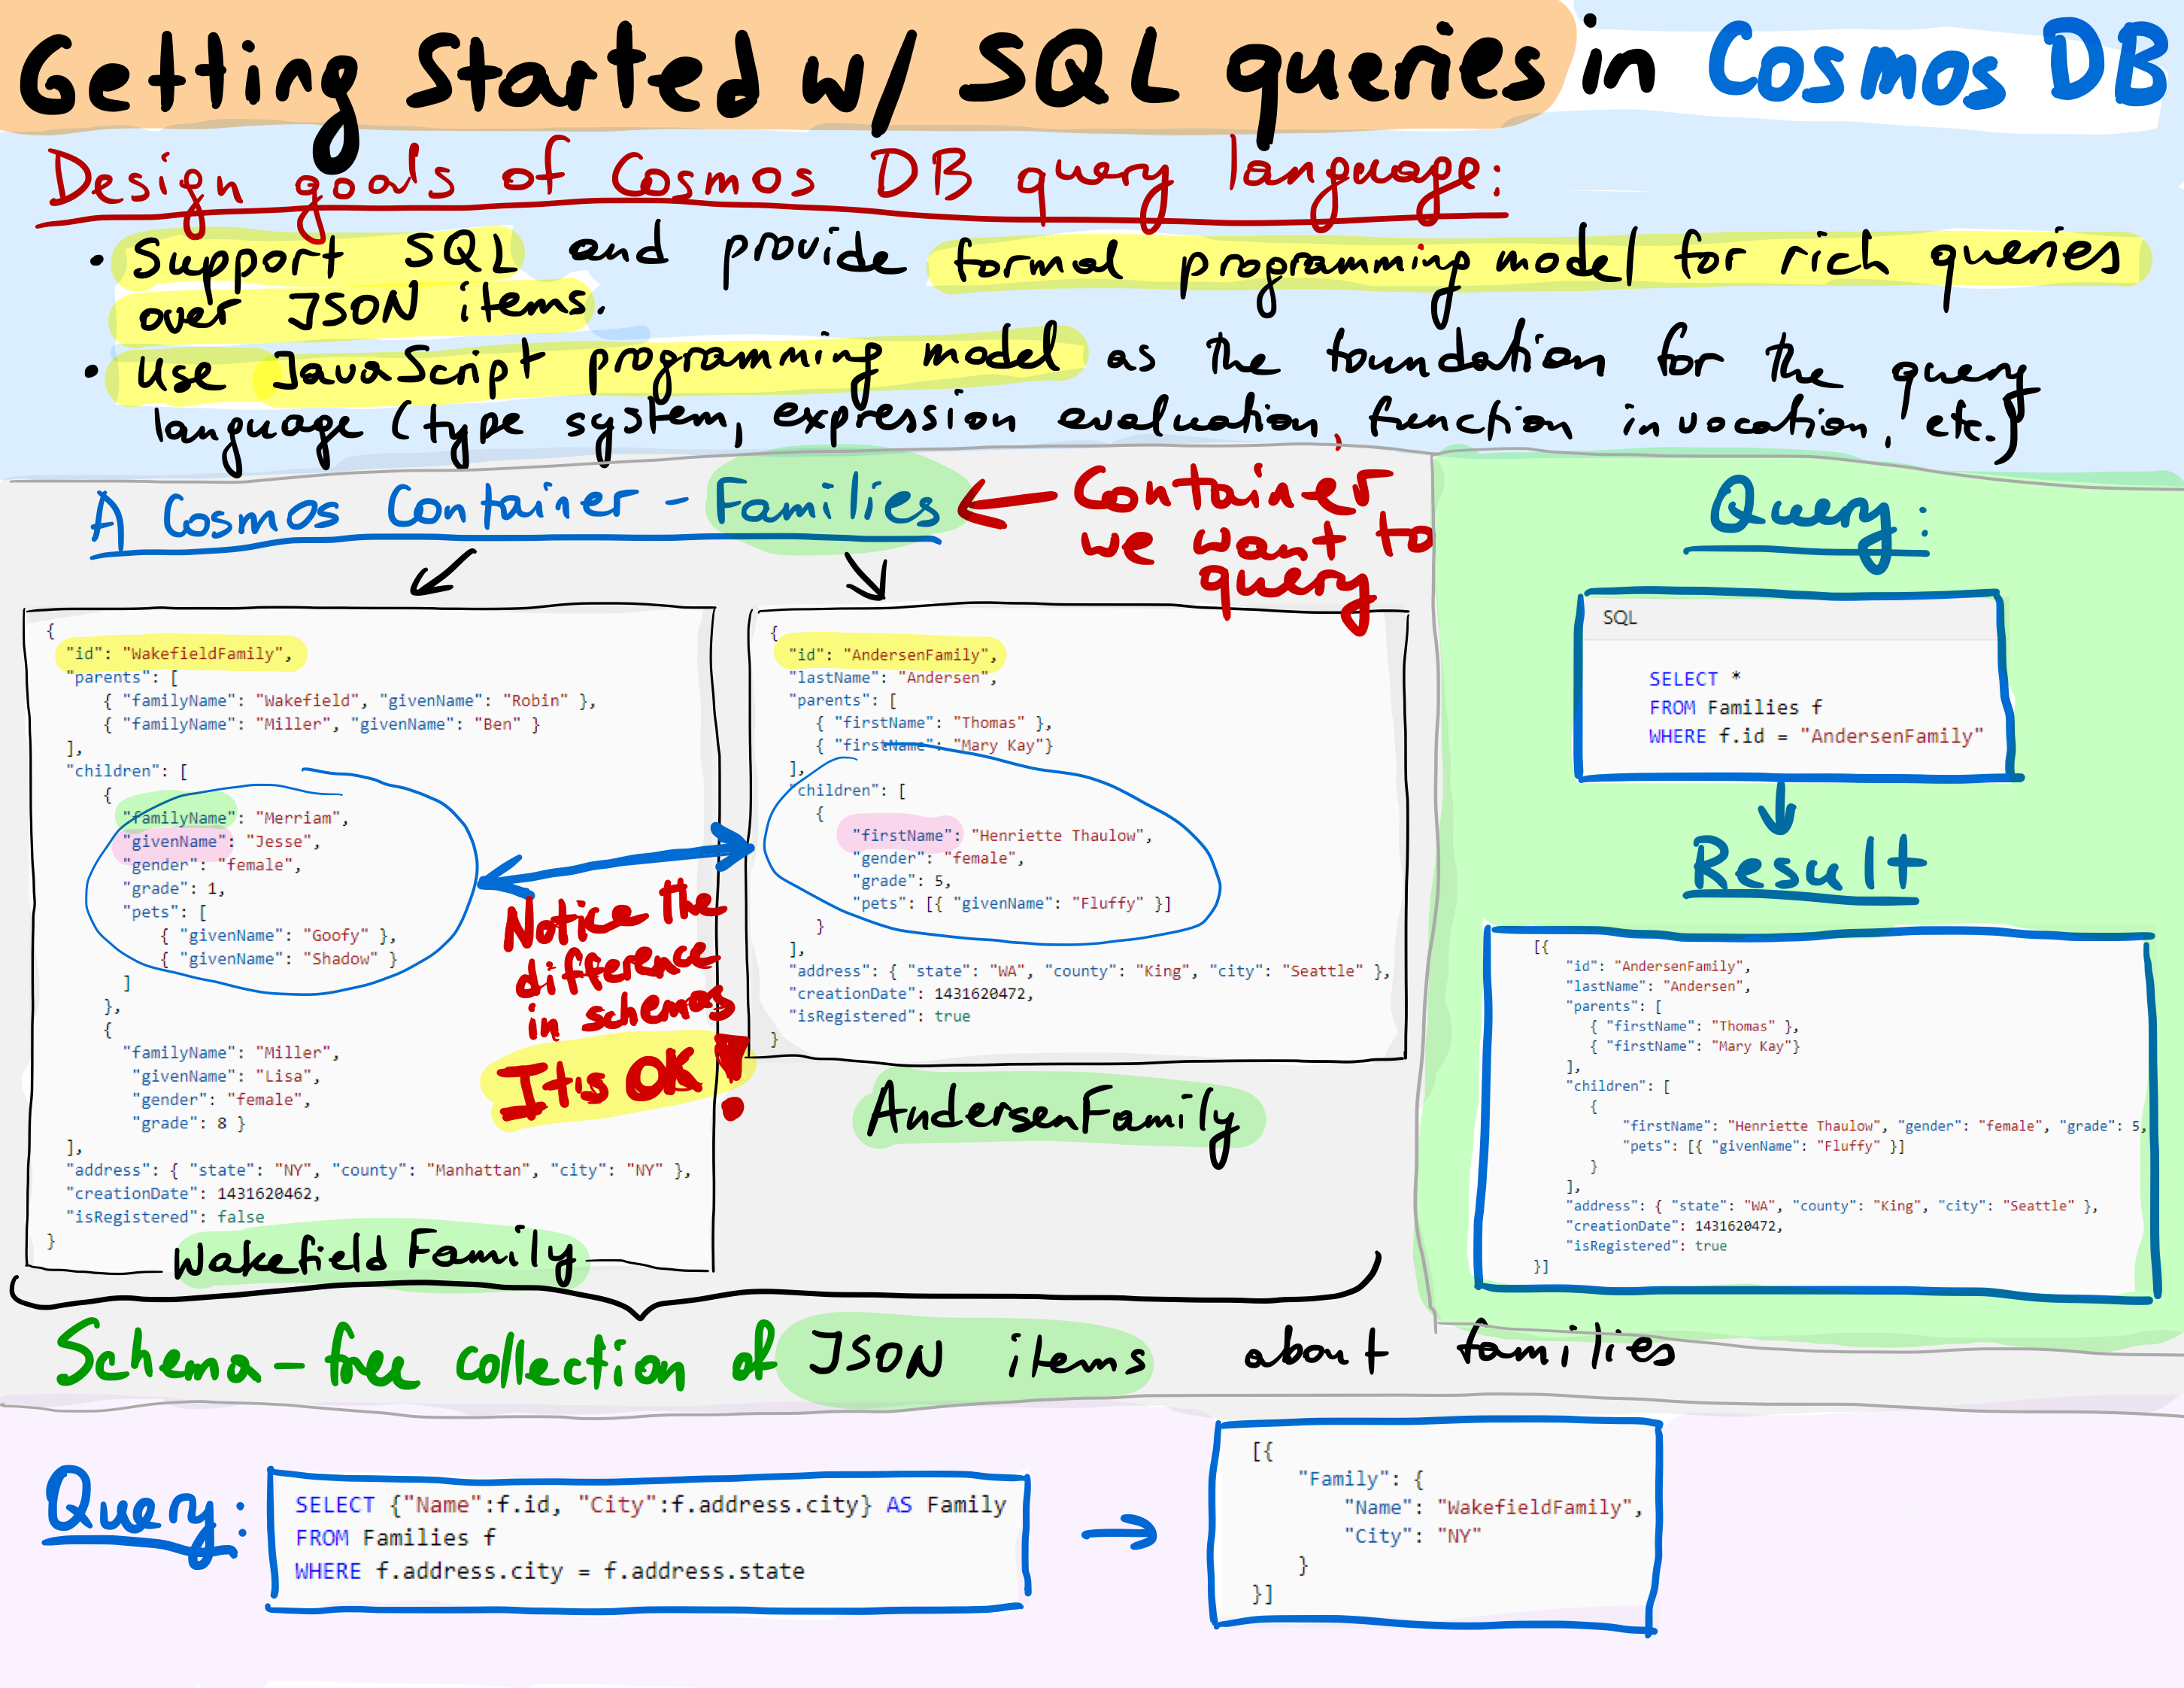 Getting Started w/ SQL queries in Cosmos DB
Design goals of Cosmos DB query language:
• Support SQL and provide formal programming model for rich queries
over JSON items.
• Use JavaScript programming model as the foundation for the query
language (type system, expression evaluation, function invocation, etc.)
A Cosmos Container - Families
Container
we want to
query
{
"id": "WakefieldFamily",
"parents": [
{ "familyName": "Wakefield", "givenName": "Robin" },
{ "familyName": "Miller", "givenName": "Ben" }
],
"children": [
{
"familyName": "Merriam",
"givenName": "Jesse",
"gender": "female",
"grade": 1,
"pets": [
{ "givenName": "Goofy" },
{ "givenName": "Shadow" }
]
},
{
"familyName": "Miller",
"givenName": "Lisa",
"gender": "female",
"grade": 8 }
],
"address": { "state": "NY", "county": "Manhattan", "city": "NY" },
"creationDate": 1431620462,
"isRegistered": false
}
Wakefield Family
Notice the
difference
in schemas
It is OK!
{
"id": "AndersenFamily",
"lastName": "Andersen",
"parents": [
{ "firstName": "Thomas" },
{ "firstName": "Mary Kay"}
],
"children": [
{
"firstName": "Henriette Thaulow",
"gender": "female",
"grade": 5,
"pets": [{ "givenName": "Fluffy" }]
}
],
"address": { "state": "WA", "county": "King", "city": "Seattle" },
"creationDate": 1431620472,
"isRegistered": true
}
AndersenFamily
Schema-free collection of JSON items about families
Query:
SQL
SELECT *
FROM Families f
WHERE f.id = "AndersenFamily"
Result
[{
"id": "AndersenFamily",
"lastName": "Andersen",
"parents": [
{ "firstName": "Thomas" },
{ "firstName": "Mary Kay"}
],
"children": [
{
"firstName": "Henriette Thaulow", "gender": "female", "grade": 5,
"pets": [{ "givenName": "Fluffy" }]
}
],
"address": { "state": "WA", "county": "King", "city": "Seattle" },
"creationDate": 1431620472,
"isRegistered": true
}]
Query:
SELECT {"Name":f.id, "City":f.address.city} AS Family
FROM Families f
WHERE f.address.city = f.address.state
[{
"Family": {
"Name": "WakefieldFamily",
"City": "NY"
}
}]